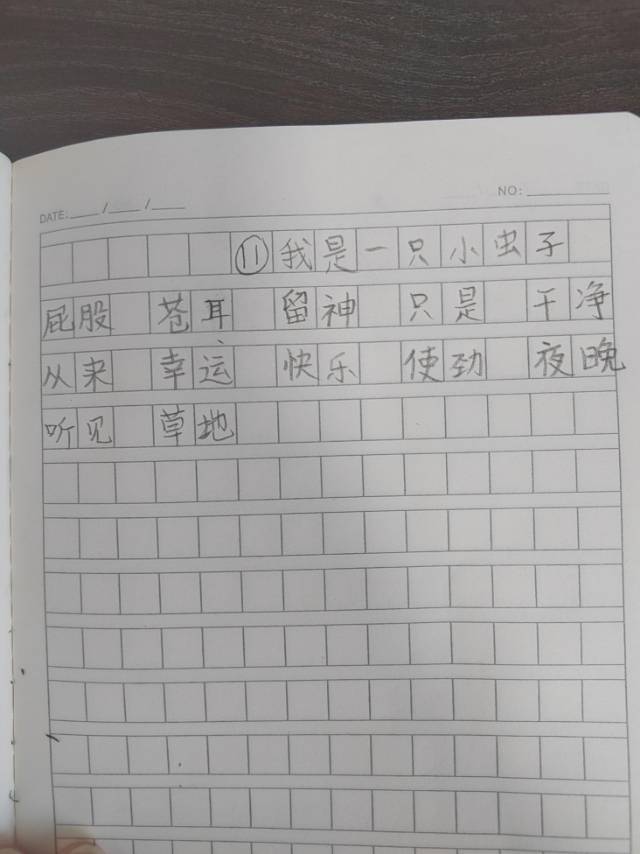 DATE: ___/___/___
NO: ______
⑪我是一只小虫子
屁股 苍耳 留神 只是 干净
从来 幸运 快乐 使劲 夜晚
听见 草地